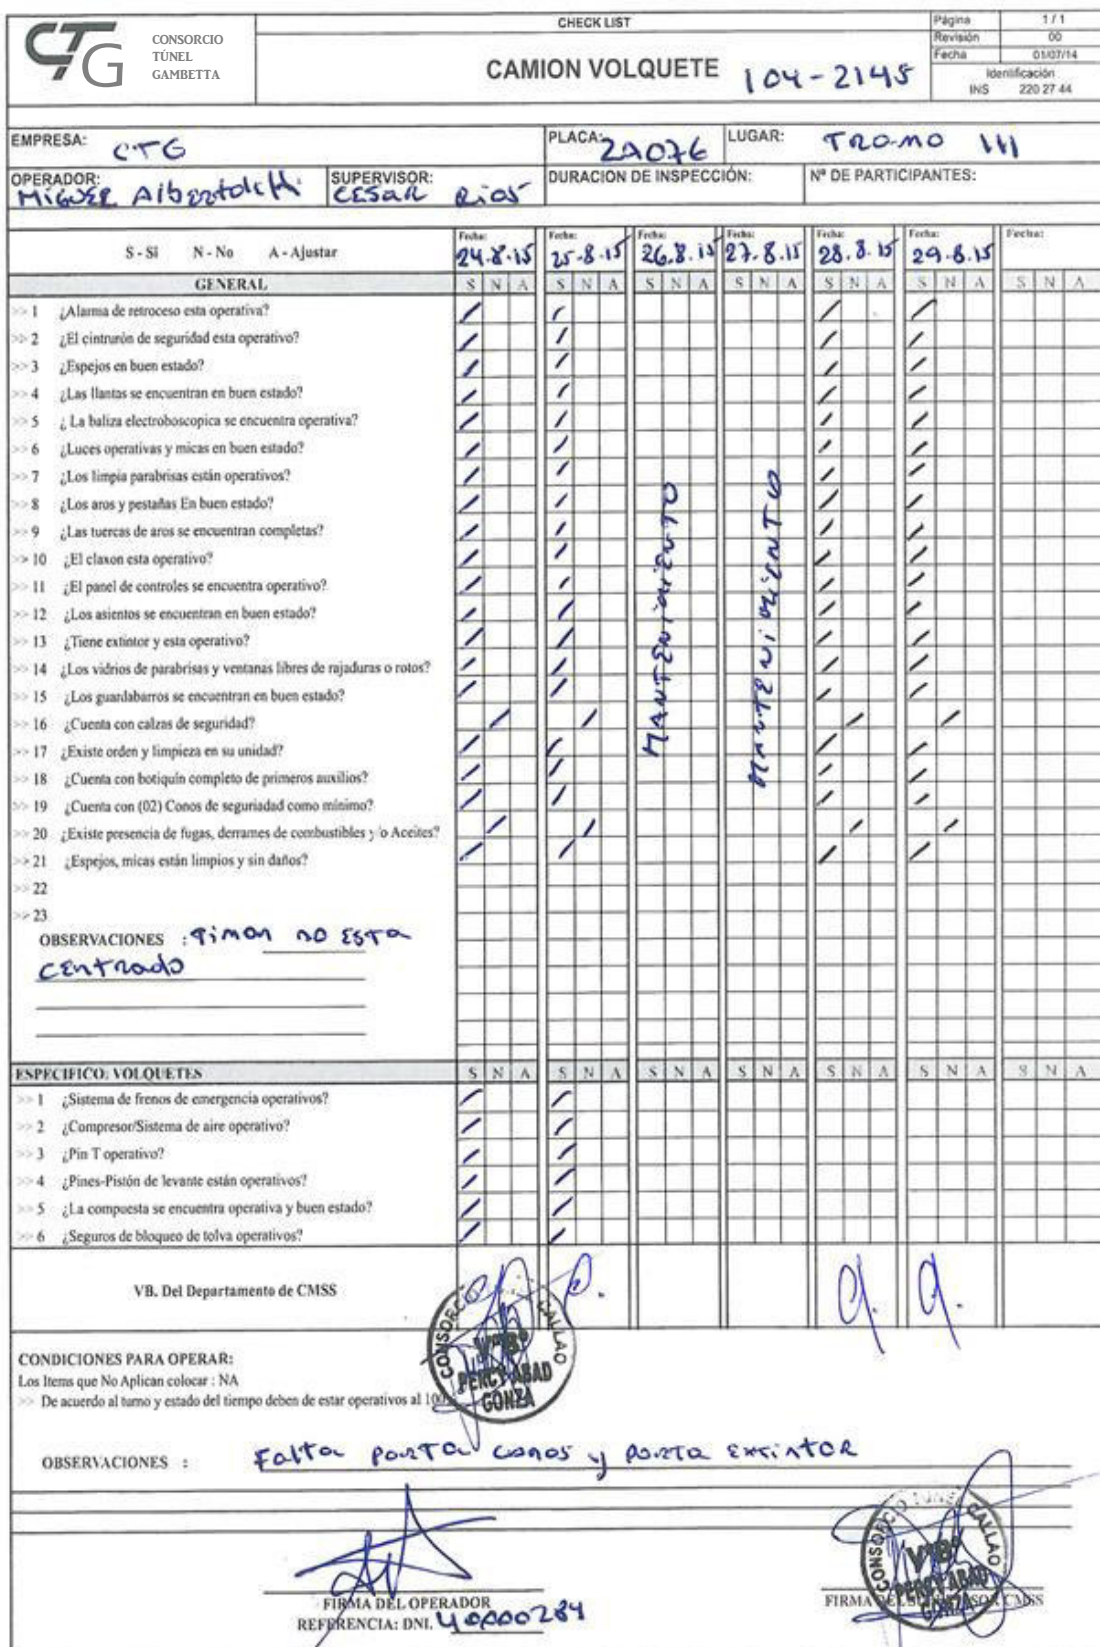 CTG
CONSORCIO
TÚNEL
GAMBETTA
CHECK LIST
CAMION VOLQUETE 104-2145
Página 1/1
Revisión 00
Fecha 01/07/14
Identificación
INS 220 27 44
EMPRESA: CTG
PLACA: 2A076
LUGAR: TRAMO III
OPERADOR: MIGUEL
SUPERVISOR: CESAR Rios
DURACION DE INSPECCIÓN:
Nº DE PARTICIPANTES:
S - Sí N - No A - Ajustar
Fecha: 24.8.15
Fecha: 25-8-15
Fecha: 26.8.15
Fecha: 27.8.15
Fecha: 28.8.15
Fecha: 29.8.15
Fecha:
GENERAL S N A S N A S N A S N A S N A S N A S N A
>> 1 ¿Alarma de retroceso esta operativa?
>> 2 ¿El cinturón de seguridad esta operativo?
>> 3 ¿Espejos en buen estado?
>> 4 ¿Las llantas se encuentran en buen estado?
>> 5 ¿ La baliza electroboscopica se encuentra operativa?
>> 6 ¿Luces operativas y micas en buen estado?
>> 7 ¿Los limpia parabrisas están operativos?
>> 8 ¿Los aros y pestañas En buen estado?
>> 9 ¿Las tuercas de aros se encuentran completas?
>> 10 ¿El claxon esta operativo?
>> 11 ¿El panel de controles se encuentra operativo?
>> 12 ¿Los asientos se encuentran en buen estado?
>> 13 ¿Tiene extintor y esta operativo?
>> 14 ¿Los vidrios de parabrisas y ventanas libres de rajaduras o rotos?
>> 15 ¿Los guardabarros se encuentran en buen estado?
>> 16 ¿Cuenta con calzas de seguridad?
>> 17 ¿Existe orden y limpieza en su unidad?
>> 18 ¿Cuenta con botiquín completo de primeros auxilios?
>> 19 ¿Cuenta con (02) Conos de seguriadad como mínimo?
>> 20 ¿Existe presencia de fugas, derrames de combustibles y/o Aceites?
>> 21 ¿Espejos, micas están limpios y sin daños?
>> 22
>> 23
MANTENIMIENTO
MANTENIMIENTO
OBSERVACIONES : Timon no ESTA
CENTRADO
ESPECIFICO: VOLQUETES S N A S N A S N A S N A S N A S N A S N A
>> 1 ¿Sistema de frenos de emergencia operativos?
>> 2 ¿Compresor/Sistema de aire operativo?
>> 3 ¿Pin T operativo?
>> 4 ¿Pines-Pistón de levante están operativos?
>> 5 ¿La compuesta se encuentra operativa y buen estado?
>> 6 ¿Seguros de bloqueo de tolva operativos?
VB. Del Departamento de CMSS
CONSORCIO CALLAO
VºBº
PERCY ABAD
GONZA
CONDICIONES PARA OPERAR:
Los Items que No Aplican colocar : NA
>> De acuerdo al turno y estado del tiempo deben de estar operativos al 100
OBSERVACIONES : Falta PORTA conos y PORTA EXTINTOR
CONSORCIO TUNEL CALLAO
VºBº
PERCY ABAD
GONZA
FIRMA DEL OPERADOR
REFERENCIA: DNI.
FIRMA DEL SUPERVISOR CMSS